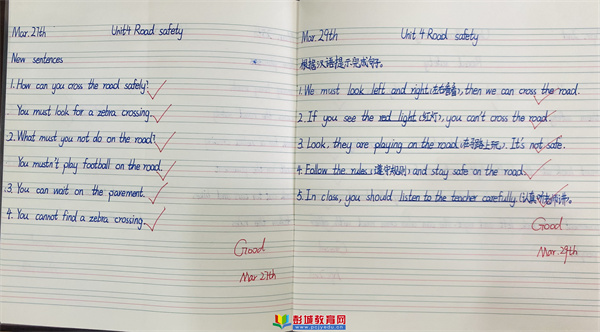 Mar. 27th Unit 4 Road safety
New sentences
1. How can you cross the road safely?
You must look for a zebra crossing.
2. What must you not do on the road?
You mustn't play football on the road.
3. You can wait on the pavement.
4. You cannot find a zebra crossing.
Good
Mar. 27th
Mar. 29th Unit 4 Road safety
根据汉语提示完成句子。
1. We must look left and right (左右看看), then we can cross the road.
2. If you see the red light (红灯), you can't cross the road.
3. Look, they are playing on the road (在马路上玩). It's not safe.
4. Follow the rules (遵守规则) and stay safe on the road.
5. In class, you should listen to the teacher carefully (认真听老师讲).
Good
Mar. 29th
彭城教育网
www.pcjyedu.cn